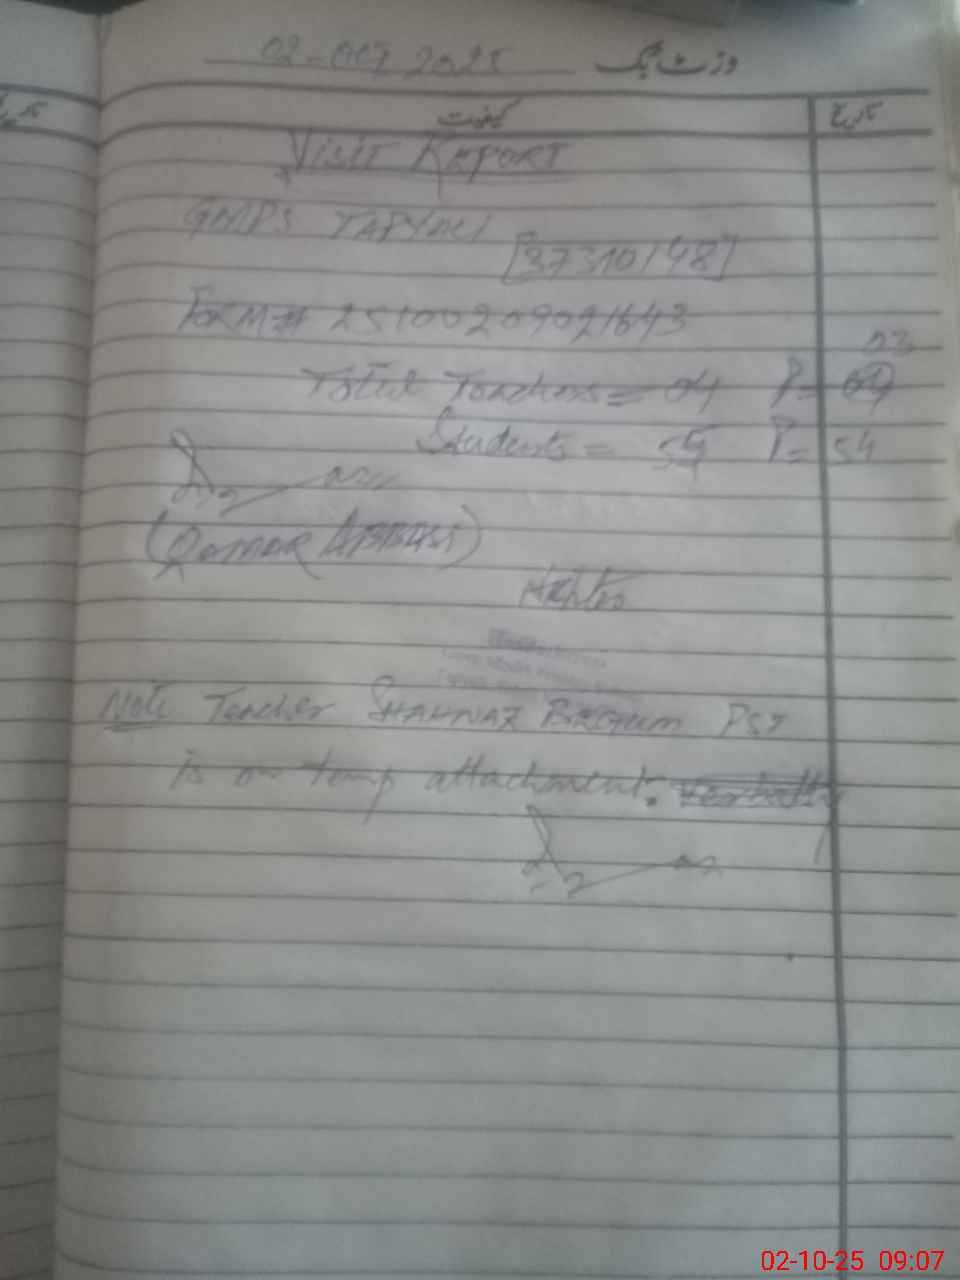 02-OCT 2025 وزٹ بک
تاریخ
کیفیت
تاریخ
VISIT REPORT
GMPS
[37310148]
FORM# 25100209021643
03
Total Teachers = 04 P=
Students = 55 P= 54
(QAMAR ABBASI)
Note Teacher SHAHNAZ BEGUM PST
is on temp attachment.
02-10-25 09:07